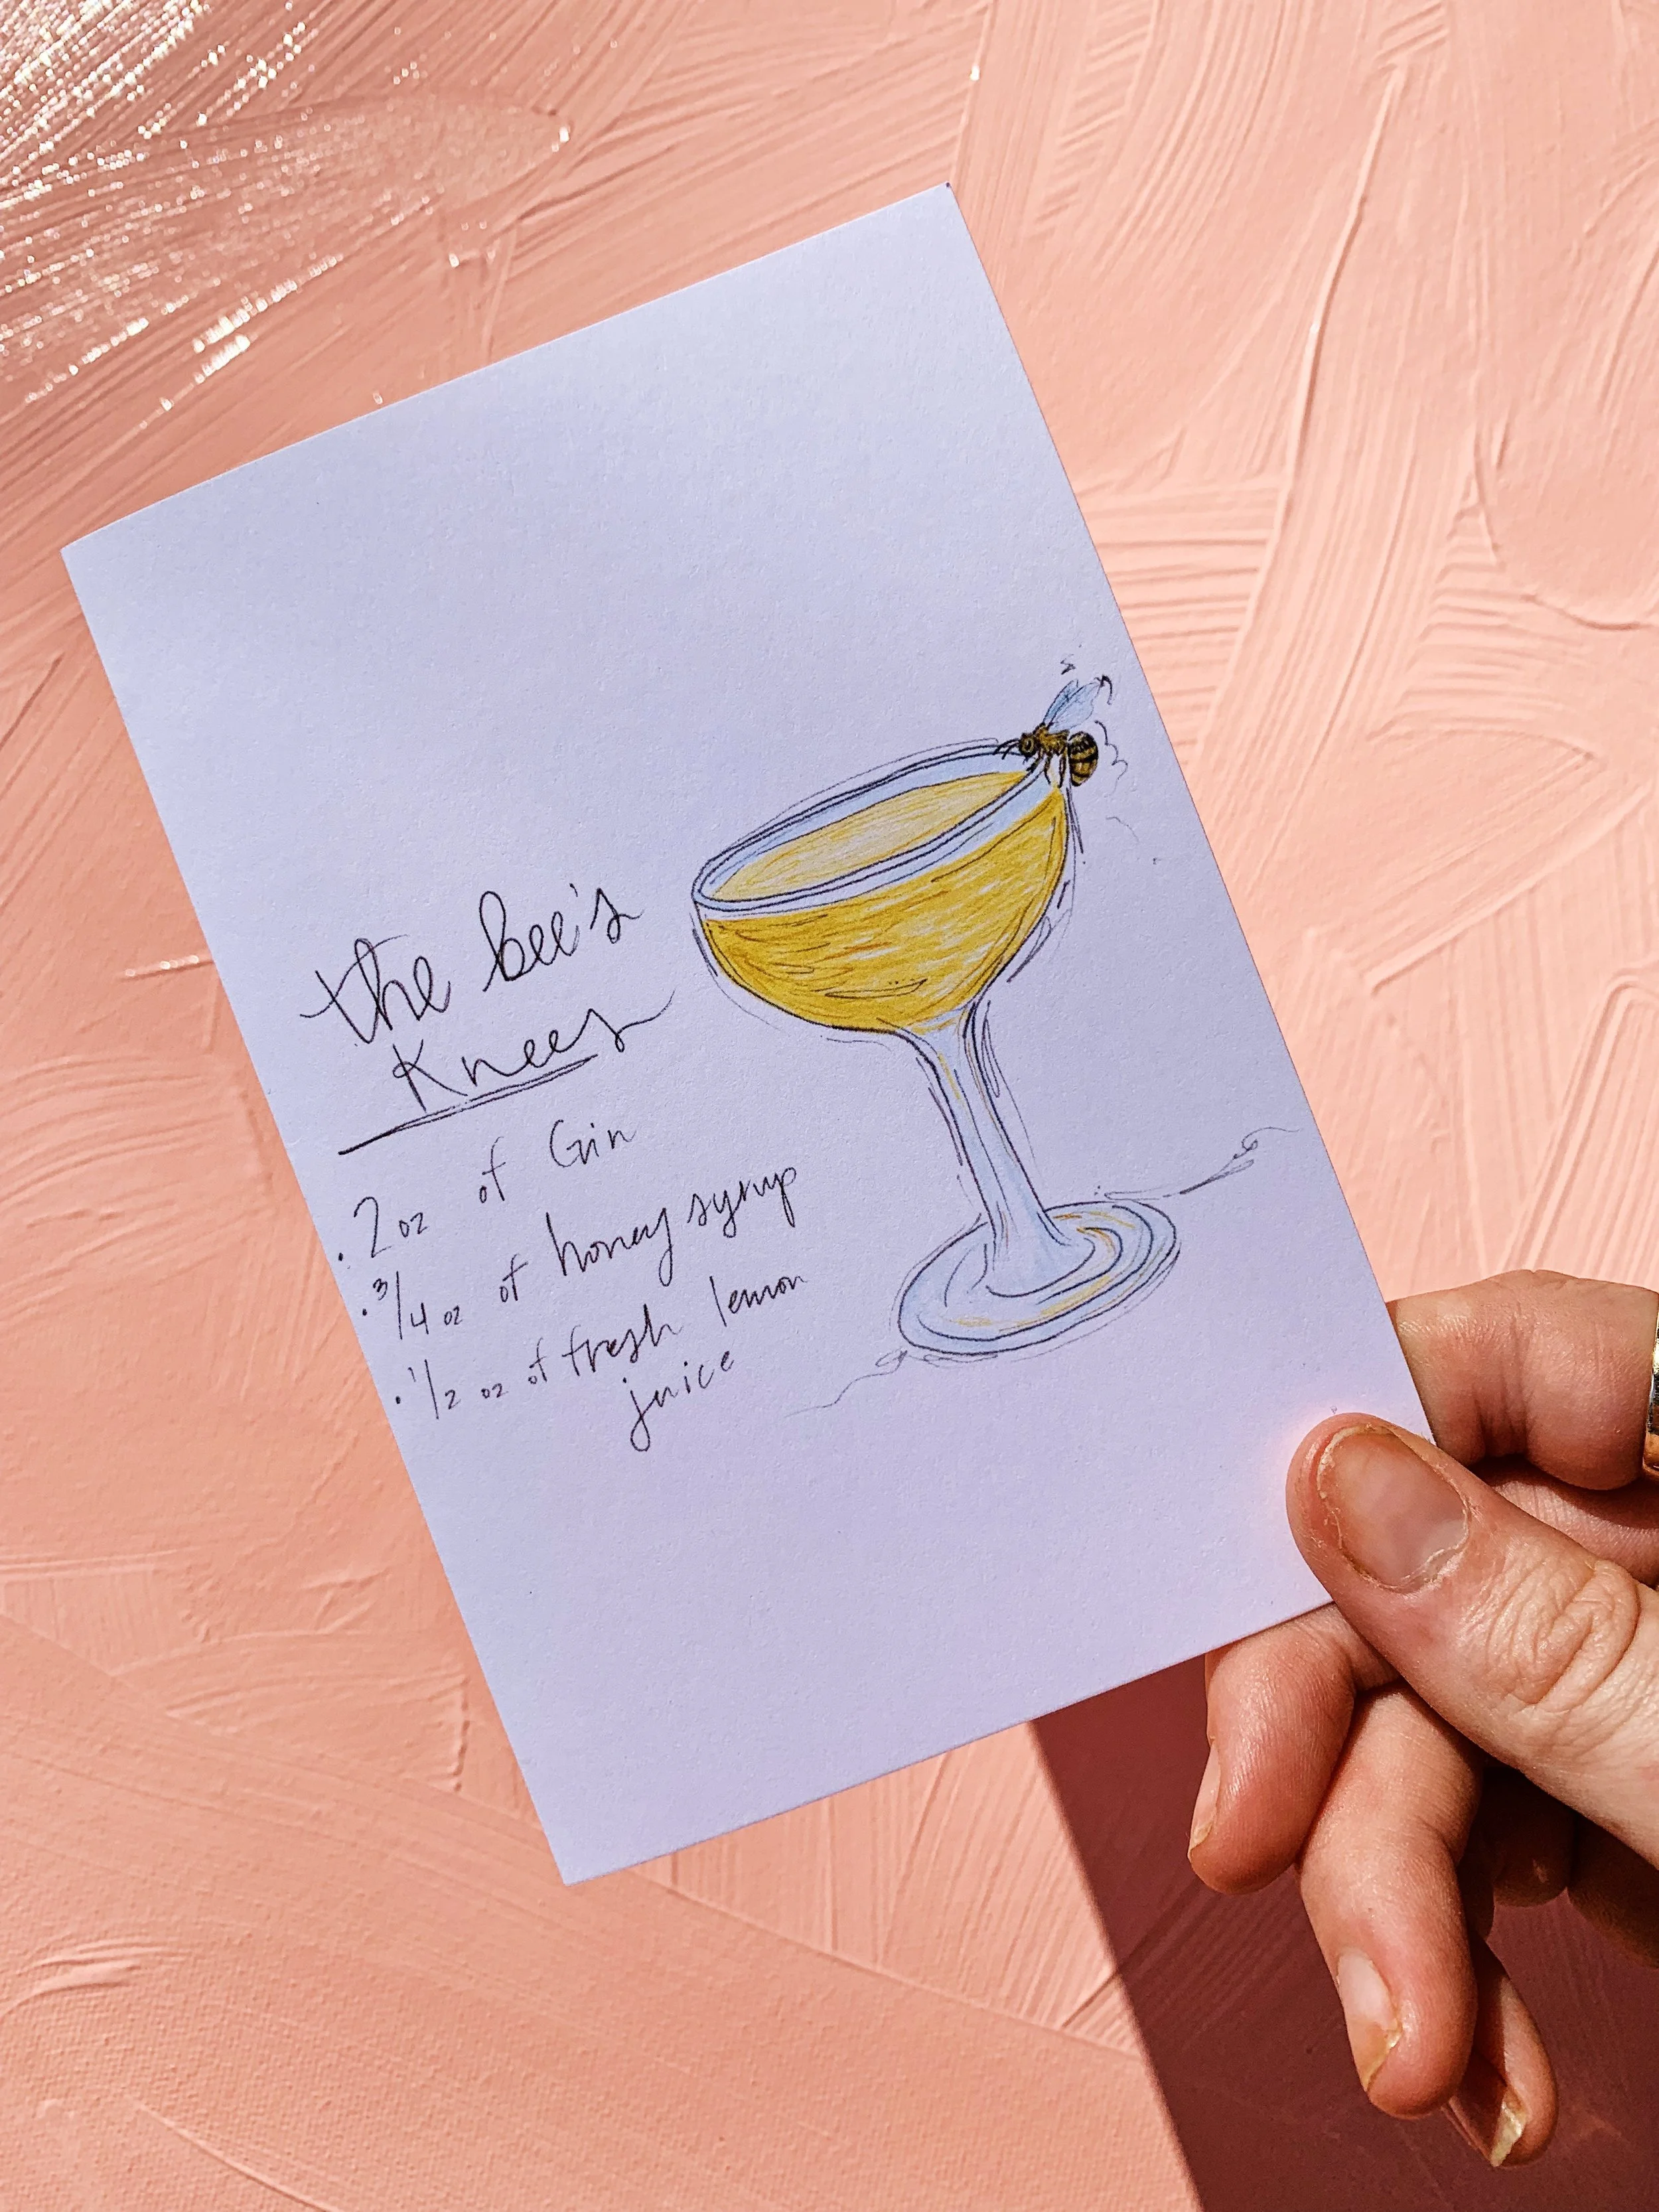 the bee's
Knees
• 2 oz of Gin
• 3/4 oz of honey syrup
• 1/2 oz of fresh lemon
juice